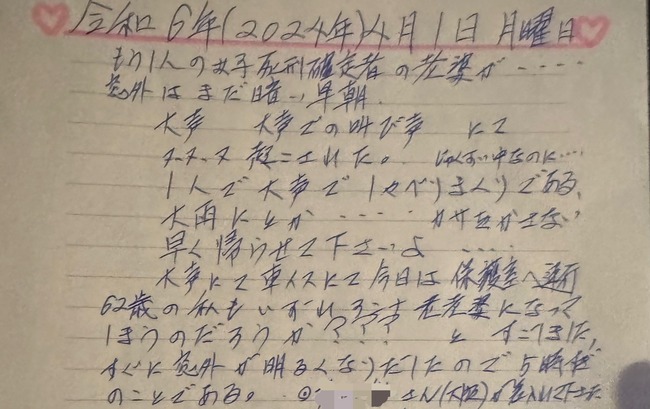 令和6年(2024年)4月1日 月曜日
もう1人の女子死刑確定者の老婆が‥‥
窓外はまだ暗い早朝
大声 大声での叫び声 にて
起こされた。 じゅくすい中なのに‥‥
1人で大声で1ゃべりまくりである。
大雨にとか ‥‥ カサ
早く帰らせて下さいよ ‥‥
大声にて車イスにて今日は保護室へ連行
62歳の私もいずれろうば 老老婆になって
しまうのだろうか??? と
すぐに窓外が明るくなりだしたので5時
のことである。 さん(大阪)が差入れて下さった